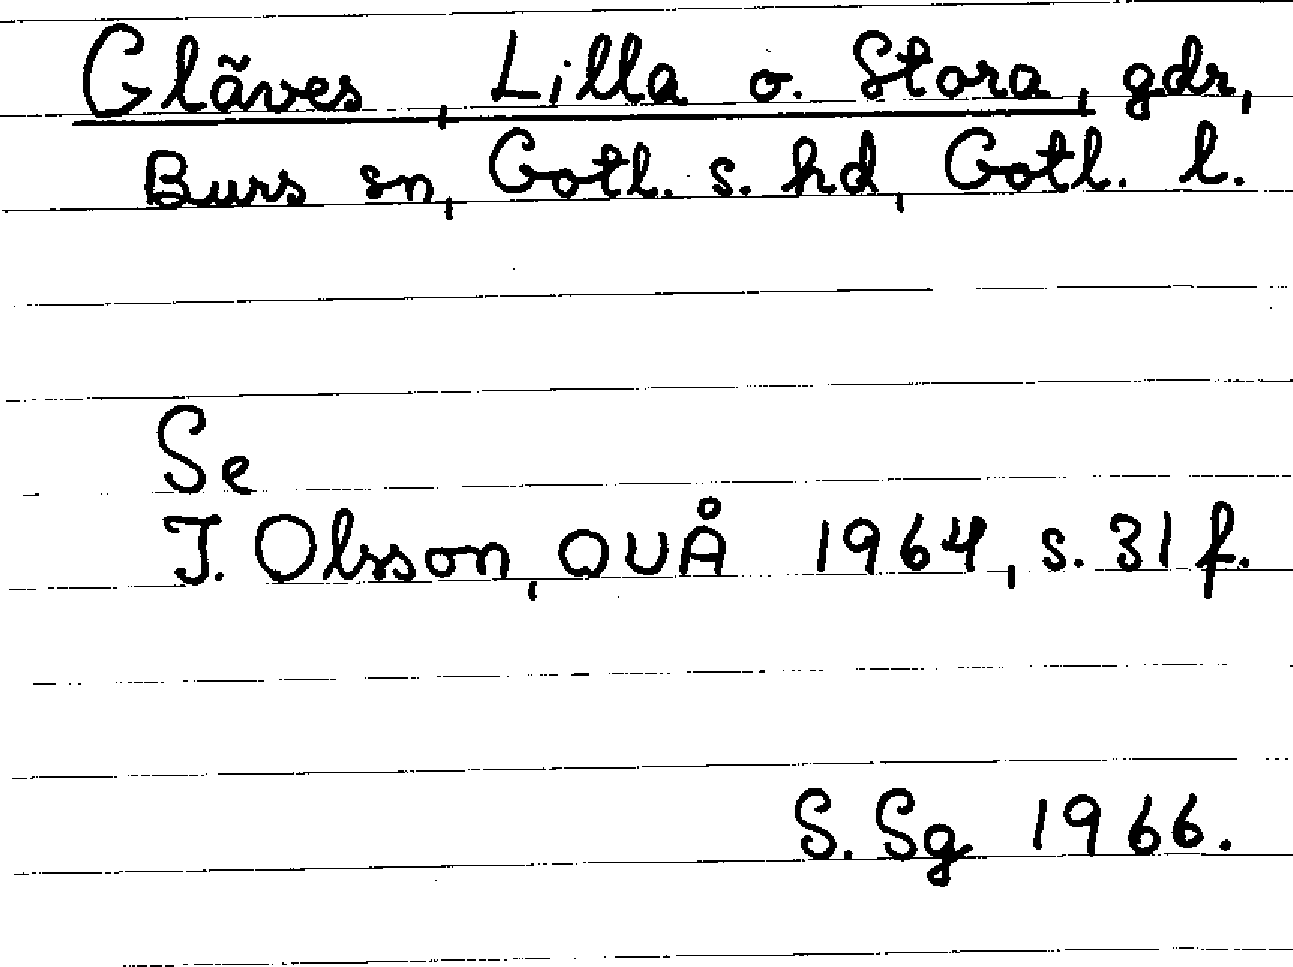 Gläves, Lilla o. Stora, gdr,
Burs sn, Gotl. s. hd, Gotl. l.
Se
I. Olsson, OUÅ 1964, s. 31 f.
S. Sg 1966.